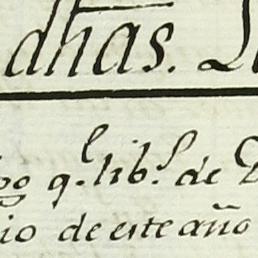 dhas.
q.l lib.s de
io de este año